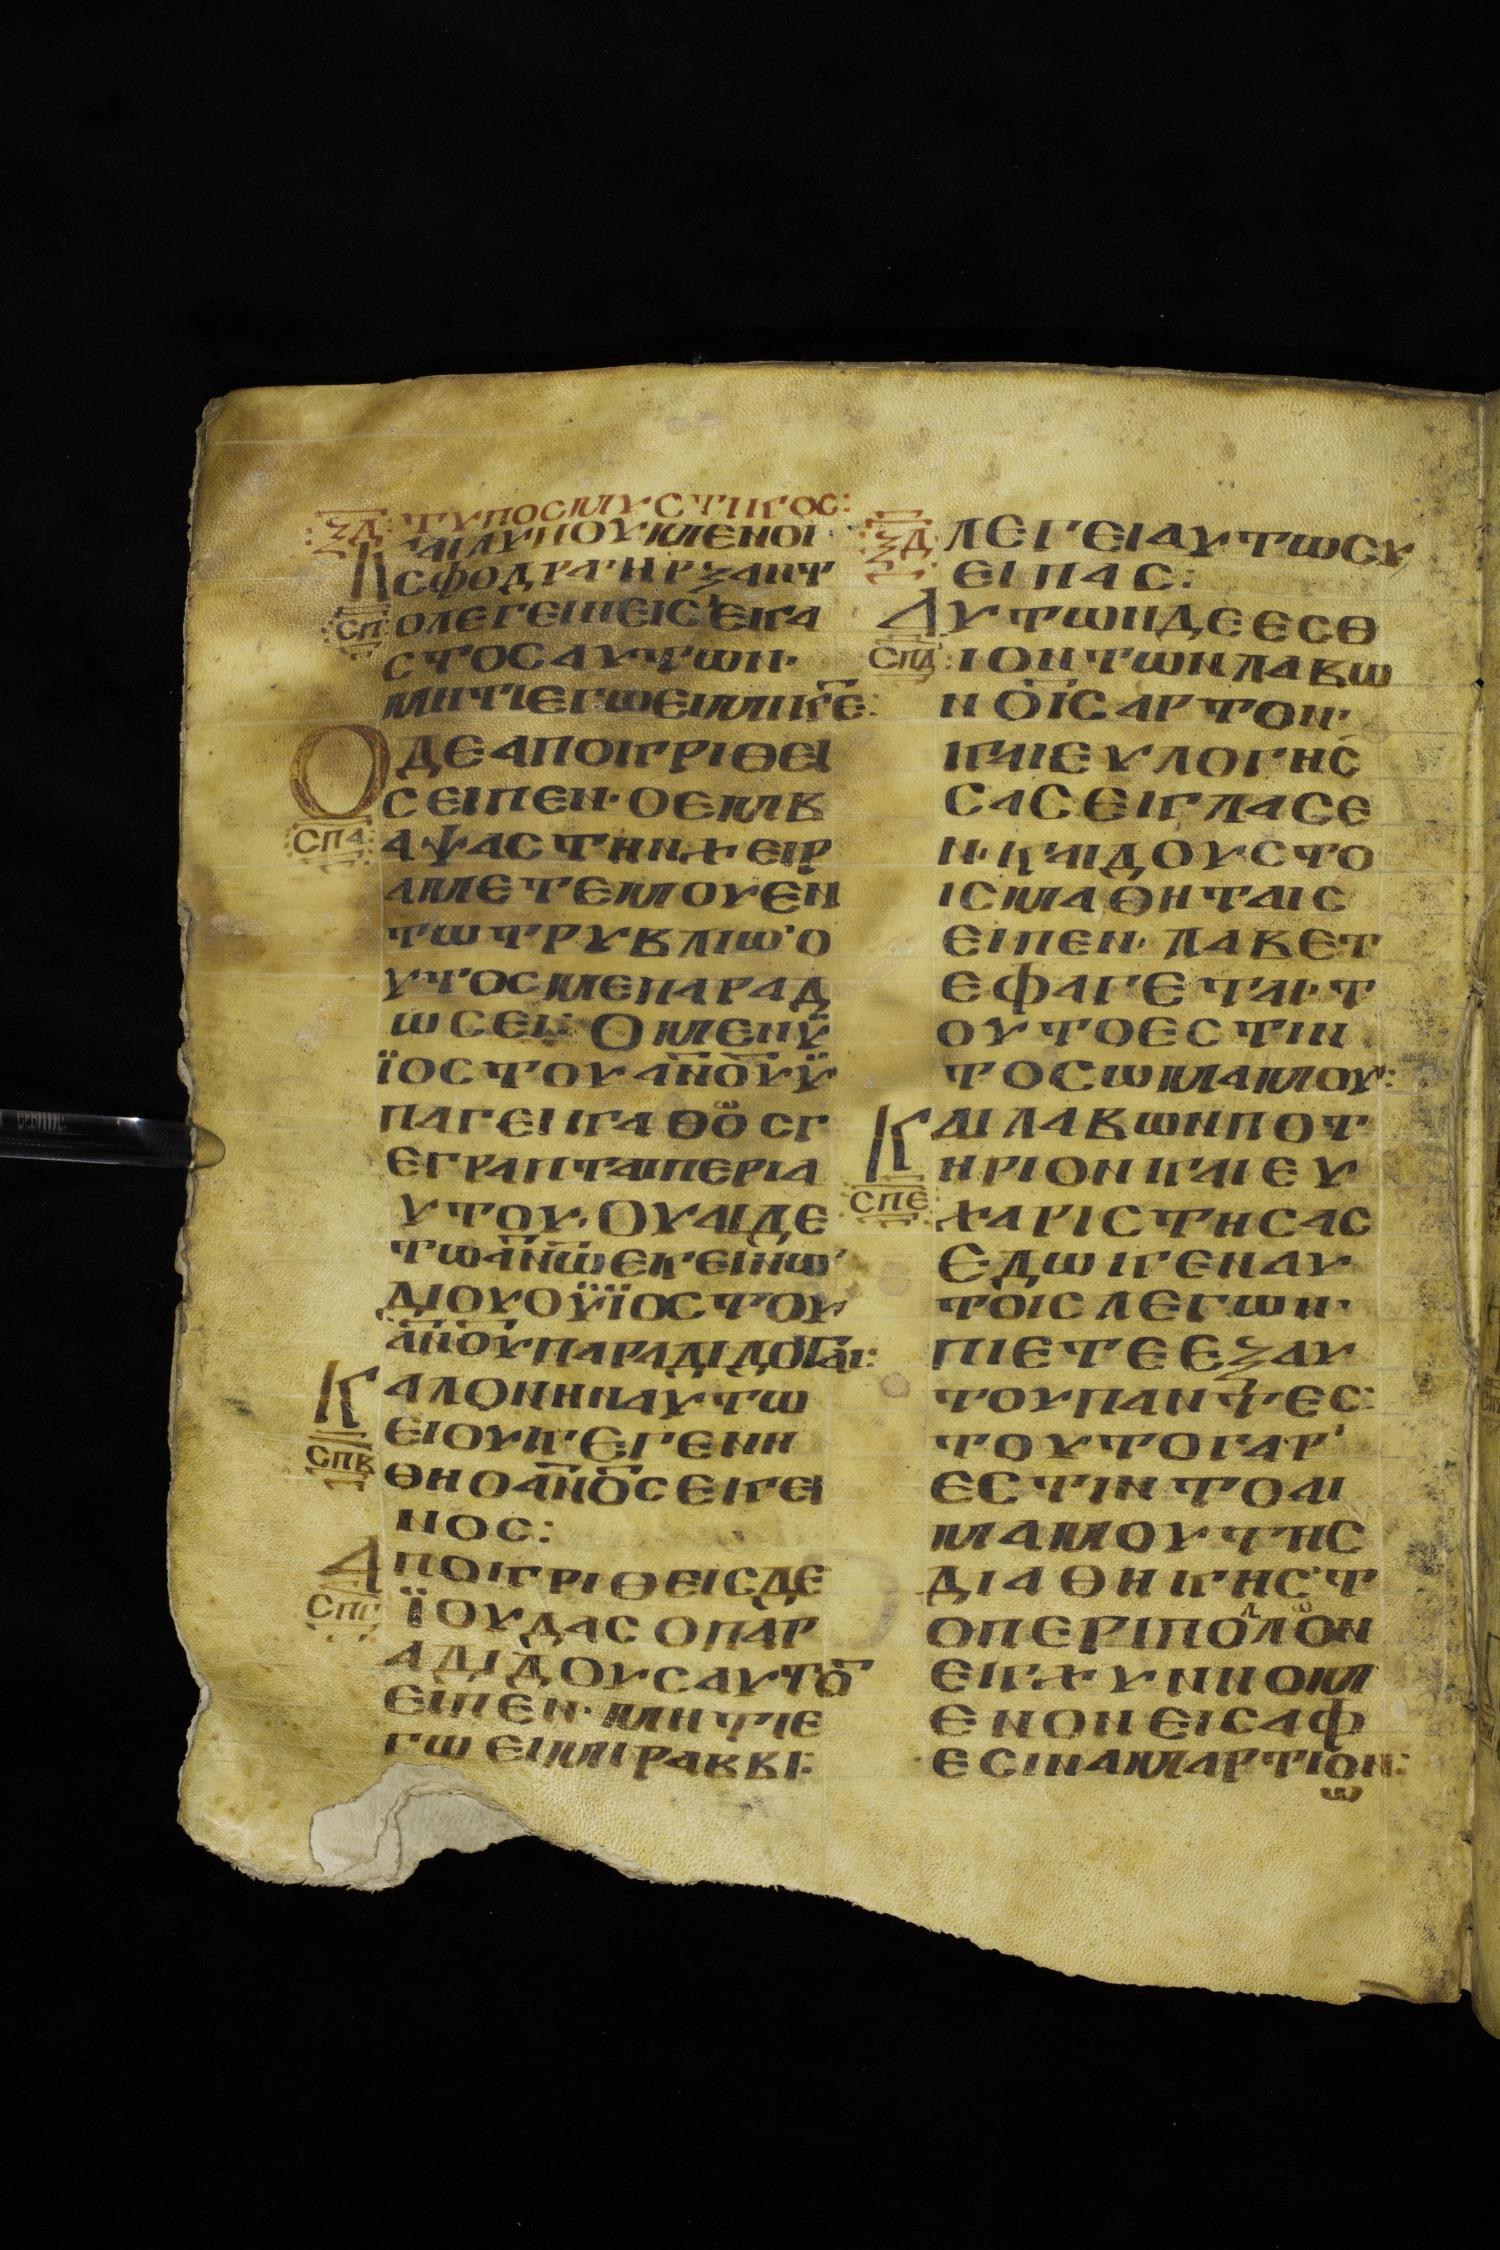 ΞΔ ΤΥΠΟΣ ΜΥΣΤΙΚΟΣ:
ΚΑΙ ΛΥΠΟΥΜΕΝΟΙ
ϹΦΟΔΡΑ·ΗΡΞΑΝΤ
ϹΠ ΟΛΕΓΕΙΝΕΙϹ'ΕΚΑ
ϹΤΟϹΑΥΤΩΝ·
ΜΗΤΙΕΓΩΕΙΜΙΚ̅Ε̅:
ΟΔΕΑΠΟΚΡΙΘΕΙ
ϹΕΙΠΕΝ·ΟΕΜΒ
ϹΠΑ ΑΨΑϹΤΗΝΧΕΙΡ
ΑΜΕΤΕΜΟΥΕΝ
ΤΩΤΡΥΒΛΙΩ·Ο
ΥΤΟϹΜΕΠΑΡΑΔ
ΩϹΕΙ· ΟΜΕΝΫ
ΪΟϹΤΟΥΑ̅Ν̅Ο̅Υ̅Ϋ
ΠΑΓΕΙΚΑΘΟωϹΓ
ΕΓΡΑΠΤΑΙΠΕΡΙΑ
ΥΤΟΥ· ΟΥΑΙΔΕ
ΤΩΑ̅Ν̅Ω̅ΕΚΕΙΝΩ'
ΔΙΟΥΟΫΪΟϹΤΟΥ
Α̅Ν̅Ο̅Υ̅ΠΑΡΑΔΙΔΟΤΑΙ:
ΚΑΛΟΝΗΝΑΥΤΩ
ΕΙΟΥΚΕΓΕΝΗ
ϹΠΒ ΘΗΟΑ̅Ν̅Ο̅ϹΕΚΕΙ
ΝΟϹ:
ΑΠΟΚΡΙΘΕΙϹΔΕ
ϹΠΓ ΪΟΥΔΑϹΟΠΑΡ
ΑΔΙΔΟΥϹΑΥΤΟ̅
ΕΙΠΕΝ·ΜΗΤΙΕ
ΓΩΕΙΜΙΡΑΒΒΙ:
ΞΔ ΛΕΓΕΙΑΥΤΩϹΥ
ΕΙΠΑϹ:
ΑΥΤΩΝΔΕΕϹΘ
ϹΠΔ ΙΟΝΤΩΝΛΑΒΩ
ΝΟΙ̅Ϲ̅ΑΡΤΟΝ·
ΚΑΙΕΥΛΟΓΗϹ
ϹΑϹΕΚΛΑϹΕ
Ν·ΚΑΙΔΟΥϹΤΟ
ΙϹΜΑΘΗΤΑΙϹ
ΕΙΠΕΝ·ΛΑΒΕΤ
ΕΦΑΓΕΤΑΙ·Τ
ΟΥΤΟΕϹΤΙΝ
ΤΟϹΩΜΑΜΟΥ:
ΚΑΙΛΑΒΩΝΠΟΤ
ΗΡΙΟΝΚΑΙΕΥ
ϹΠΕ ΧΑΡΙϹΤΗϹΑϹ
ΕΔΩΚΕΝΑΥ
ΤΟΙϹΛΕΓΩΝ·
ΠΙΕΤΕΕΞΑΥ
ΤΟΥΠΑΝΤΕϹ:
ΤΟΥΤΟΓΑΡ'
ΕϹΤΙΝΤΟΑΙ
ΜΑΜΟΥΤΗϹ
ΔΙΑΘΗΚΗϹ'Τ
ΟΠΕΡΙΠΟλΛΟωΝ
ΕΚΧΥΝΝΟΜ
ΕΝΟΝΕΙϹΑΦ
ΕϹΙΝΑΜΑΡΤΙΟΝ:
ω